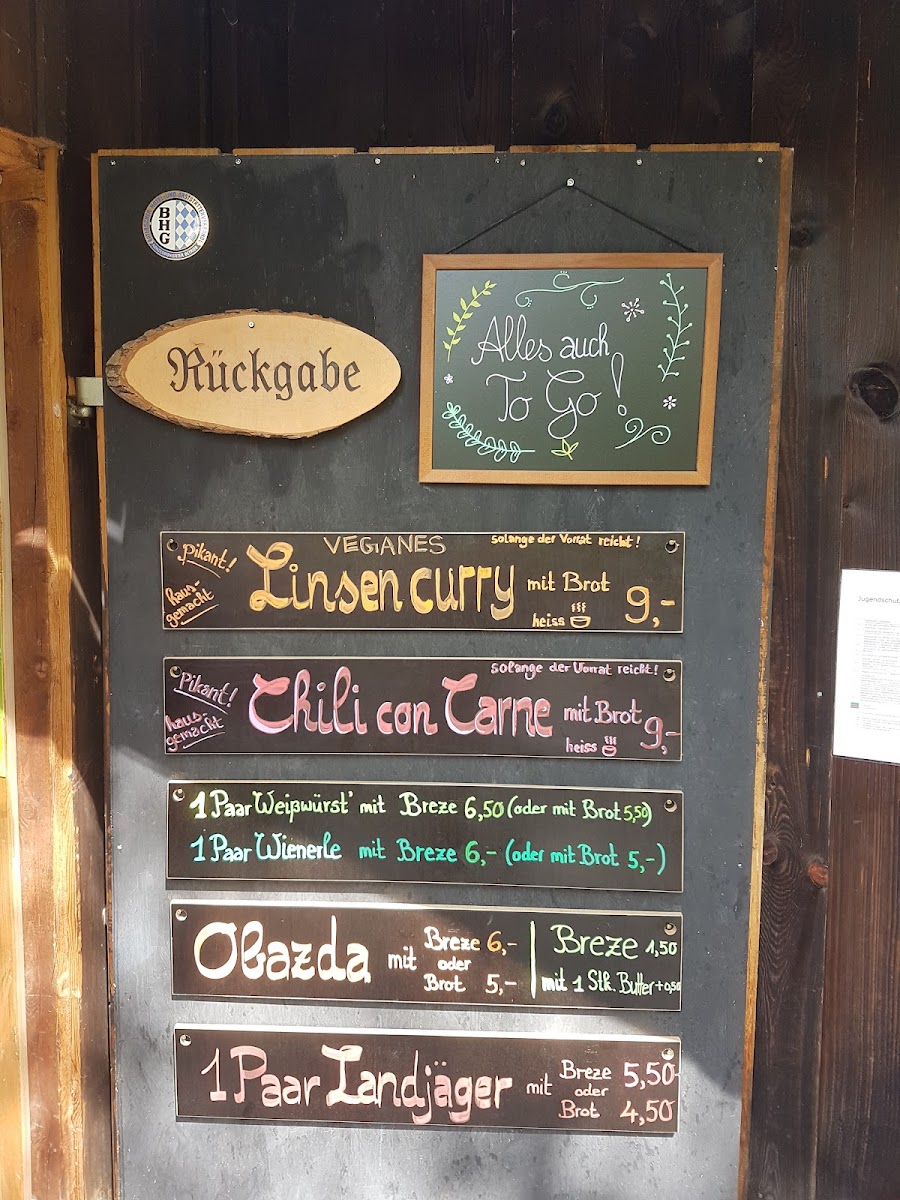 BHG
Rückgabe
Alles auch
To Go!
Pikant!
haus-
gemacht
VEGANES
solange der Vorrat reicht!
Linsencurry mit Brot
heiss
9,-
Pikant!
haus-
gemacht
solange der Vorrat reicht!
Chili con Carne mit Brot
heiss
9,-
1 Paar Weißwürst' mit Breze 6,50 (oder mit Brot 5,50)
1 Paar Wienerle mit Breze 6,- (oder mit Brot 5,-)
Obazda mit
Breze 6,-
oder
Brot 5,-
Breze 1,50
mit 1 Stk. Butter +0,50
1 Paar Landjäger mit
Breze 5,50
oder
Brot 4,50